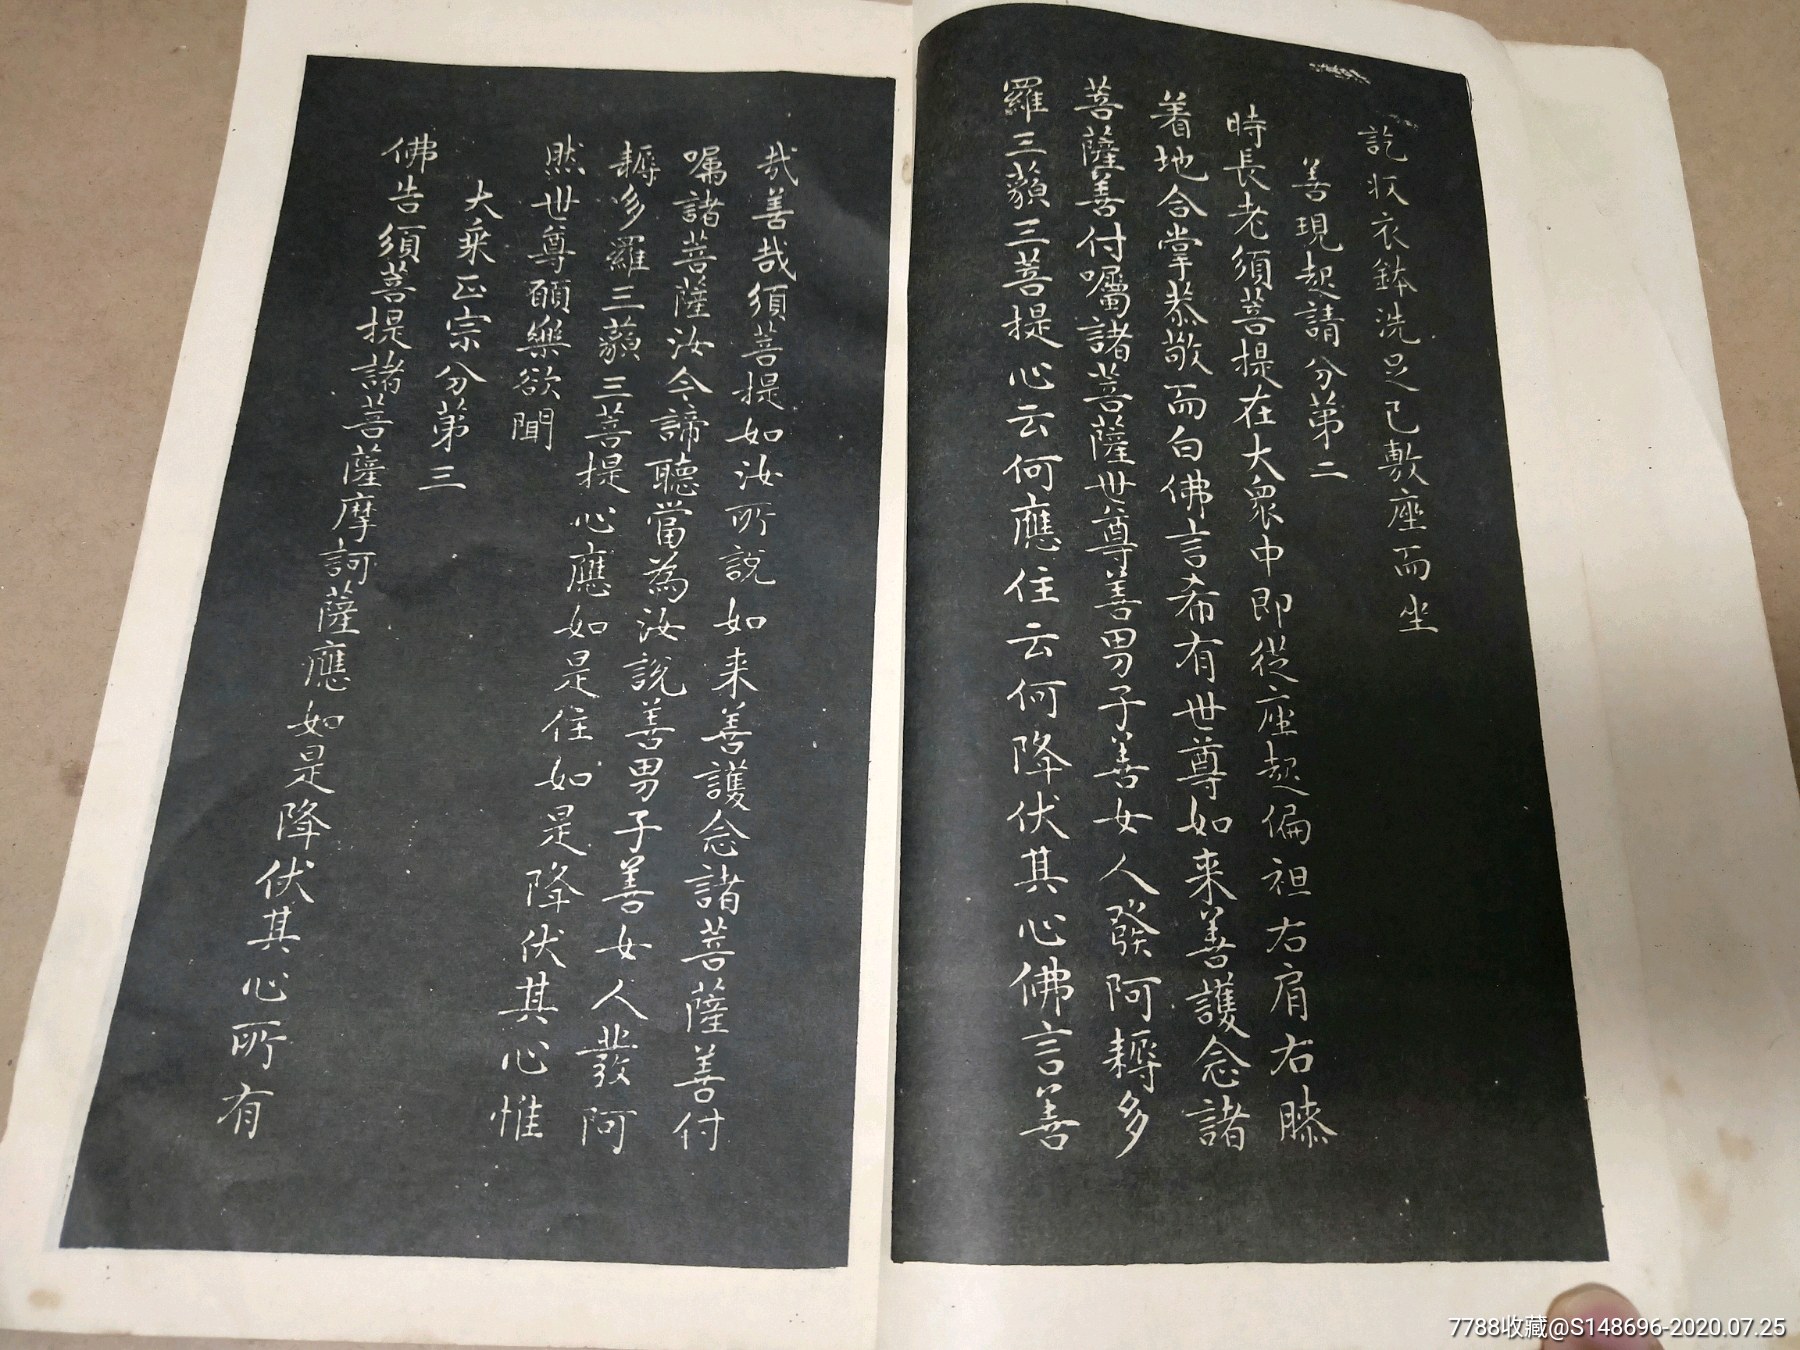 訖收衣鉢洗足已敷座而坐
善現起請分第二
時長老須菩提在大衆中即從座起偏袒右肩右膝
着地合掌恭敬而白佛言希有世尊如来善護念諸
菩薩善付囑諸菩薩世尊善男子善女人發阿耨多
羅三藐三菩提心云何應住云何降伏其心佛言善
哉善哉須菩提如汝所說如来善護念諸菩薩善付
囑諸菩薩汝今諦聽當為汝說善男子善女人發阿
耨多羅三藐三菩提心應如是住如是降伏其心惟
然世尊願樂欲聞
大乘正宗分第三
佛告須菩提諸菩薩摩訶薩應如是降伏其心所有
7788收藏@S148696-2020.07.25